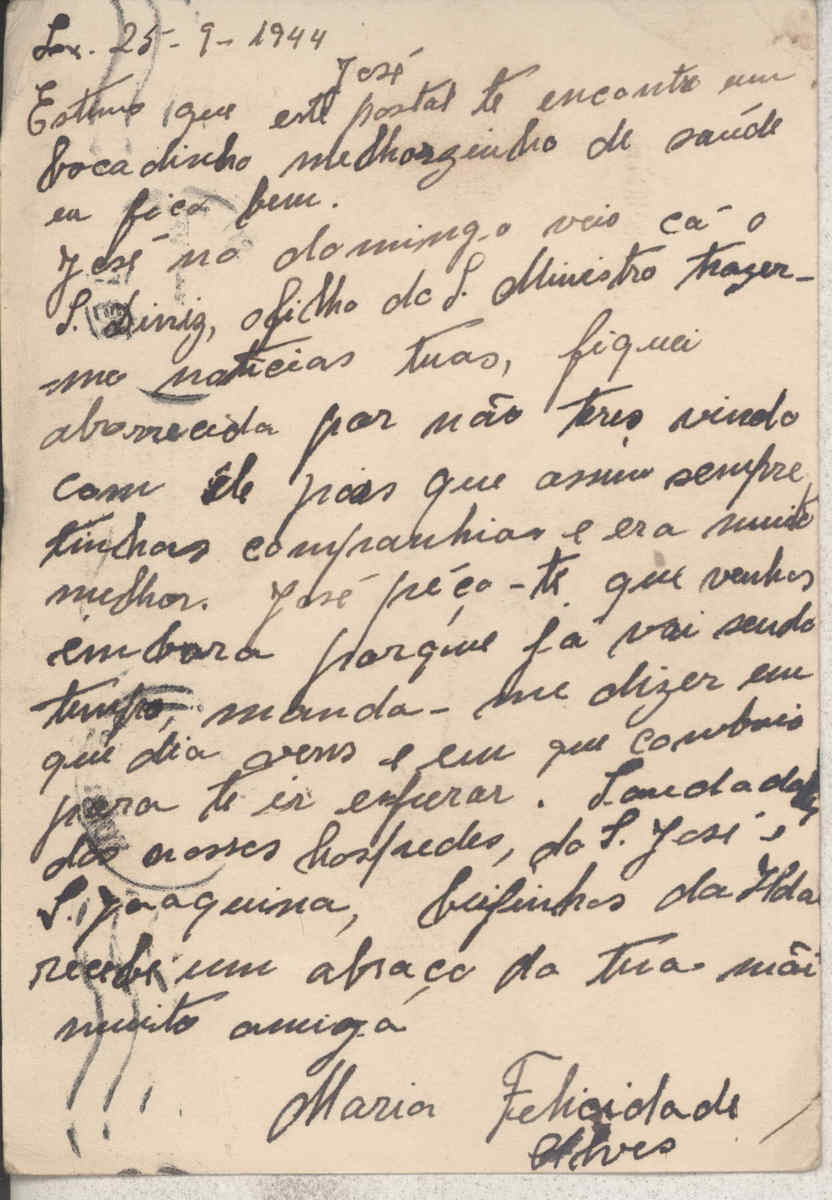 Lx. 25-9-1944
José
Estimo que este postal te encontre um
bocadinho melhorzinho de saúde
eu fico bem.
José no domingo veio cá o
S. Diniz, o filho do S. Ministro trazer-
-me noticias tuas, fiquei
aborrecida por não teres vindo
com êle pois que assim sempre
tinhas companhia e era muito
melhor. José péço-te que venhas
embora porque já vai sendo
tempo, manda-me dizer em
que dia vens e em que comboio
para te ir esperar. Saudades
dos nossos hospedes, do S. José e
S. Joaquina, beijinhos da Ilda
recebe um abraço da tua mãi
muito amiga
Maria Felicidade
Alves